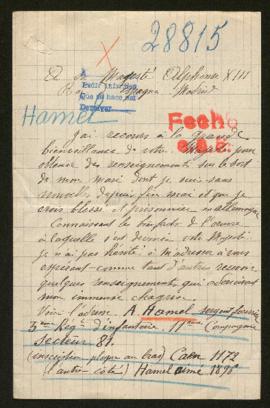 28815
A Sa Majesté Alphonse XIII
Roi Espagne Madrid
Hamel
Fecho
J'ai recours à la grande
bienveillance de votre pour
obtenir des renseignements sur le sort
de mon mari dont je suis sans
nouvelle depuis fin mai et que je
crois blessé et prisonnier en allemagne
Connaissant les bienfaits de l'œuvre
à laquelle s'est dévoué votre Majesté
je n'ai pas hésité à m'adresser à vous
espérant comme tant d'autres recevoir
quelques renseignements qui adouciront
mon immense chagrin.
Voici l'adresse A. Hamel sergent fourrier
3eme Reg d'infanterie 11eme Compagnie
Secteur 84.
(inscription plaque au bras) Caen 1172
(l'autre côté) Hamel aimé 1898